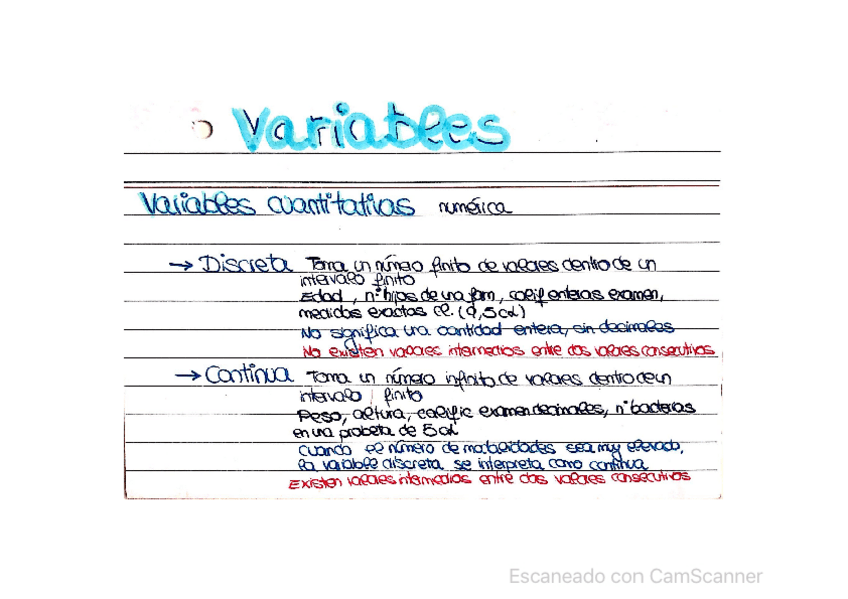 Variables
Variables cuantitativas numérica
→ Discreta Toma un número finito de valores dentro de un
intervalo finito
Edad, nº hijos de una fam, calif enteras examen,
medidas exactas cl. (0,5cl)
No significa una cantidad entera, sin decimales
No existen valores intermedios entre dos valores consecutivos
→ Continua Toma un número infinito de valores dentro de un
intervalo finito
Peso, altura, calific examen decimales, nº bacterias
en una probeta de 5cl
Cuando el número de modalidades sea muy elevado,
la variable discreta se interpreta como continua
Existen valores intermedios entre dos valores consecutivos
Escaneado con CamScanner